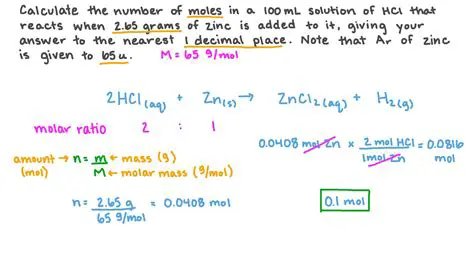 Calculate the number of moles in a 100 mL solution of HCl that
reacts when 2.65 grams of zinc is added to it, giving your
answer to the nearest 1 decimal place. Note that Ar of zinc
is given to 65 u. M = 65 g/mol
2HCl(aq) + Zn(s) → ZnCl2(aq) + H2(g)
molar ratio 2 : 1
0.0408 mol Zn × 2 mol HCl / 1 mol Zn = 0.0816 mol
amount (mol) → n = m ← mass (g)
M ← molar mass (g/mol)
n = 2.65 g / 65 g/mol = 0.0408 mol
0.1 mol